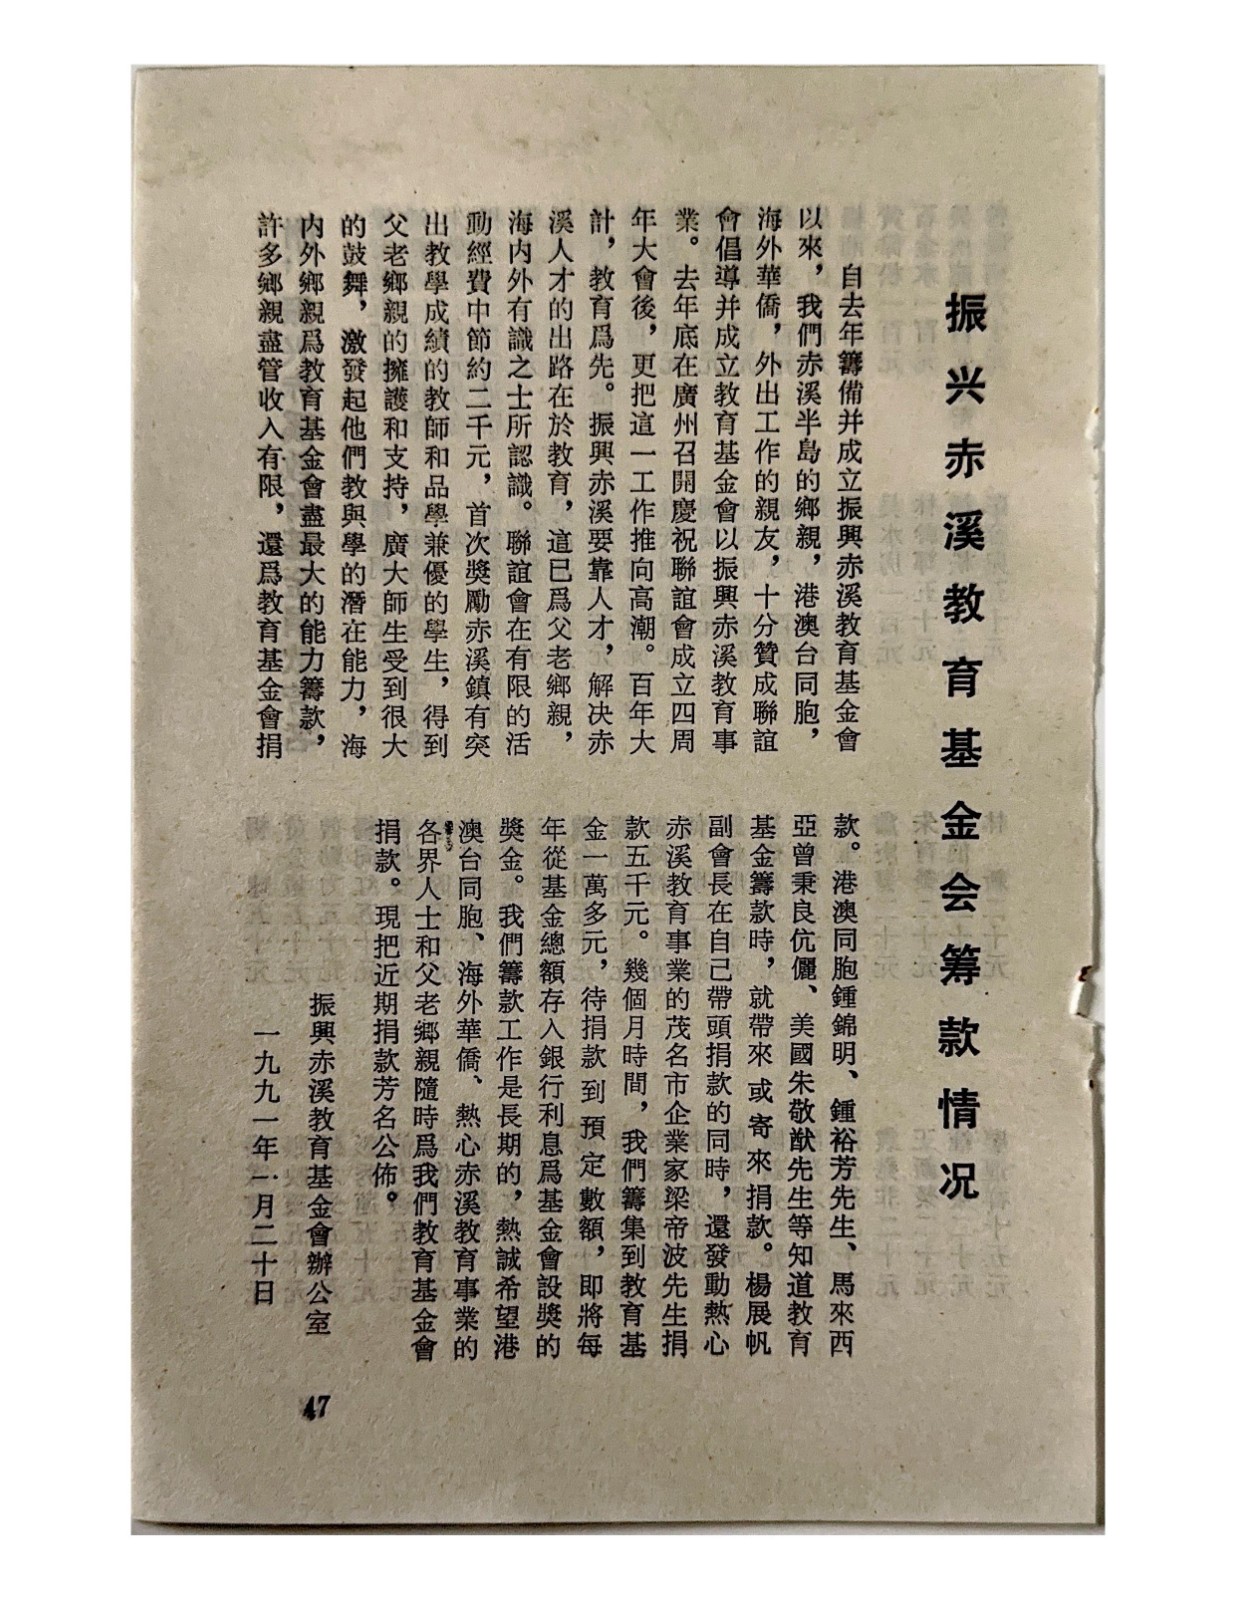 振兴赤溪教育基金会筹款情况
自去年籌備并成立振興赤溪教育基金會
以來，我們赤溪半島的鄉親，港澳台同胞，
海外華僑，外出工作的親友，十分贊成聯誼
會倡導并成立教育基金會以振興赤溪教育事
業。去年底在廣州召開慶祝聯誼會成立四周
年大會後，更把這一工作推向高潮。百年大
計，教育爲先。振興赤溪要靠人才，解决赤
溪人才的出路在於教育，這已爲父老鄉親，
海内外有識之士所認識。聯誼會在有限的活
動經費中節約二千元，首次獎勵赤溪鎮有突
出教學成績的教師和品學兼優的學生，得到
父老鄉親的擁護和支持，廣大師生受到很大
的鼓舞，激發起他們教與學的潛在能力，海
内外鄉親爲教育基金會盡最大的能力籌款，
許多鄉親盡管收入有限，還爲教育基金會捐
款。港澳同胞鍾錦明、鍾裕芳先生、馬來西
亞曾秉良伉儷、美國朱敬猷先生等知道教育
基金籌款時，就帶來或寄來捐款。楊展帆
副會長在自己帶頭捐款的同時，還發動熱心
赤溪教育事業的茂名市企業家梁帝波先生捐
款五千元。幾個月時間，我們籌集到教育基
金一萬多元，待捐款到預定數額，即將每
年從基金總額存入銀行利息爲基金會設獎的
獎金。我們籌款工作是長期的，熱誠希望港
澳台同胞、海外華僑、熱心赤溪教育事業的
各界人士和父老鄉親隨時爲我們教育基金會
捐款。現把近期捐款芳名公佈。
振興赤溪教育基金會辦公室
一九九一年一月二十日
47